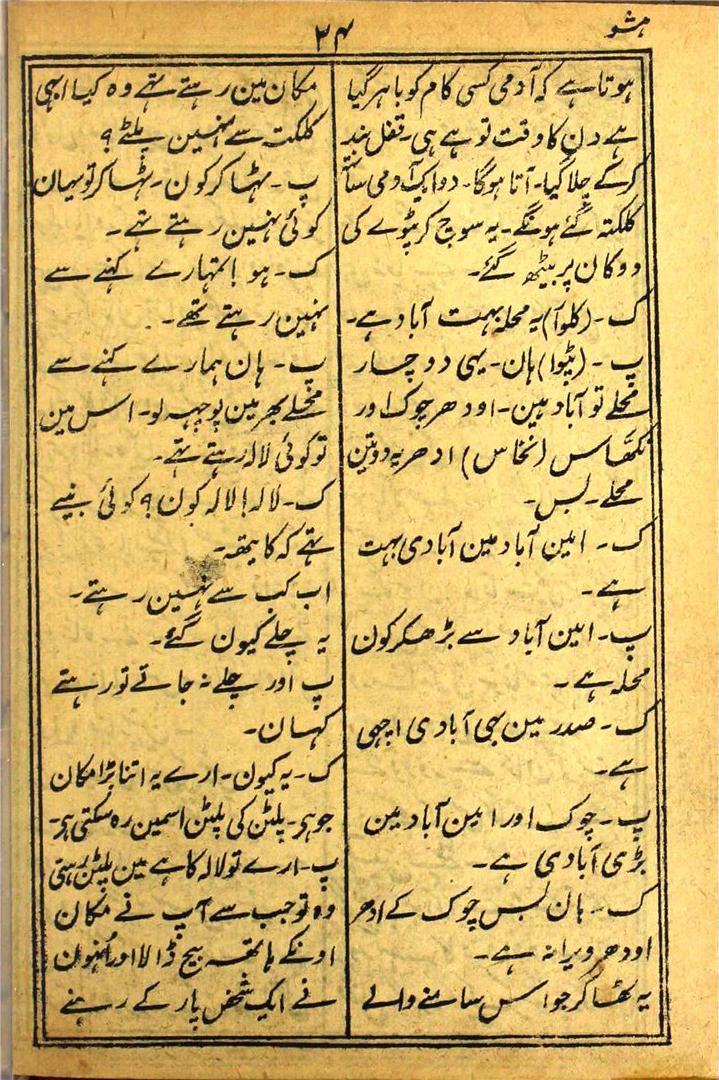 ہشو
۳۴
ہوتا ہے کہ آدمی کسی کام کو باہر گیا
ہے دن کا وقت تو ہے ہی۔ قفل بند
کرکے چلا گیا۔ آتا ہوگا۔ دو ایک آدمی ساتھ
کلکتہ گئے ہونگے۔ یہ سوچ کر پٹوے کی
دوکان پر بیٹھ گئے۔
ک۔ (کلوآ) یہ محلہ بہت آباد ہے۔
پ۔ (پٹوا) ہان۔ یہی دو چار
محلے تو آباد ہین۔ اودھر چوک اور
نکھاس (نخاس) ادھر یہ دو تین
محلے۔ بس۔
ک۔ امین آباد مین آبادی بہت
ہے۔
پ۔ امین آباد سے بڑھکر کون
محلہ ہے۔
ک۔ صدر مین بھی آبادی اچھی
ہے۔
پ۔ چوک اور امین آباد مین
بڑی آبادی ہے۔
ک۔ ہان بس چوک کے ادھر
اودھر ویرانہ ہے۔
یہ ٹھاکر جو اس سامنے والے
مکان مین رہتے تہے وہ کیا ابہی
کلکتہ سے نہین پلٹے؟
پ۔ ٹہاکر کون۔ ٹہاکر تو یہان
کوئی نہین رہتے تہے۔
ک۔ ہو! تمہارے کہنے سے
نہین رہتے تھے۔
پ۔ ہان ہمارے کہنے سے
محلے بھر مین پوچہہ لو۔ اس مین
تو کوئی لالہ رہتے تہے۔
ک۔ لالہ! لالہ کون؟ کوئی بنیے
تہے کہ کایتھہ۔
اب کب سے نہین رہتے۔
یہ چلے کیون گئے۔
پ اور چلے نہ جاتے تو رہتے
کہان۔
ک۔ یہ کیون۔ ارے یہ اتنا بڑا مکان
جو ہی۔ پلٹن کی پلٹن اسمین رہ سکتی ہی۔
پ۔ ارے تو لالہ کاہے مین پلٹن رہتی
وہ تو جب سے آپ نے مکان
اونکے ہاتھہ بیچ ڈالا اور اُنہون
نے ایک شخص پار کے رہنے